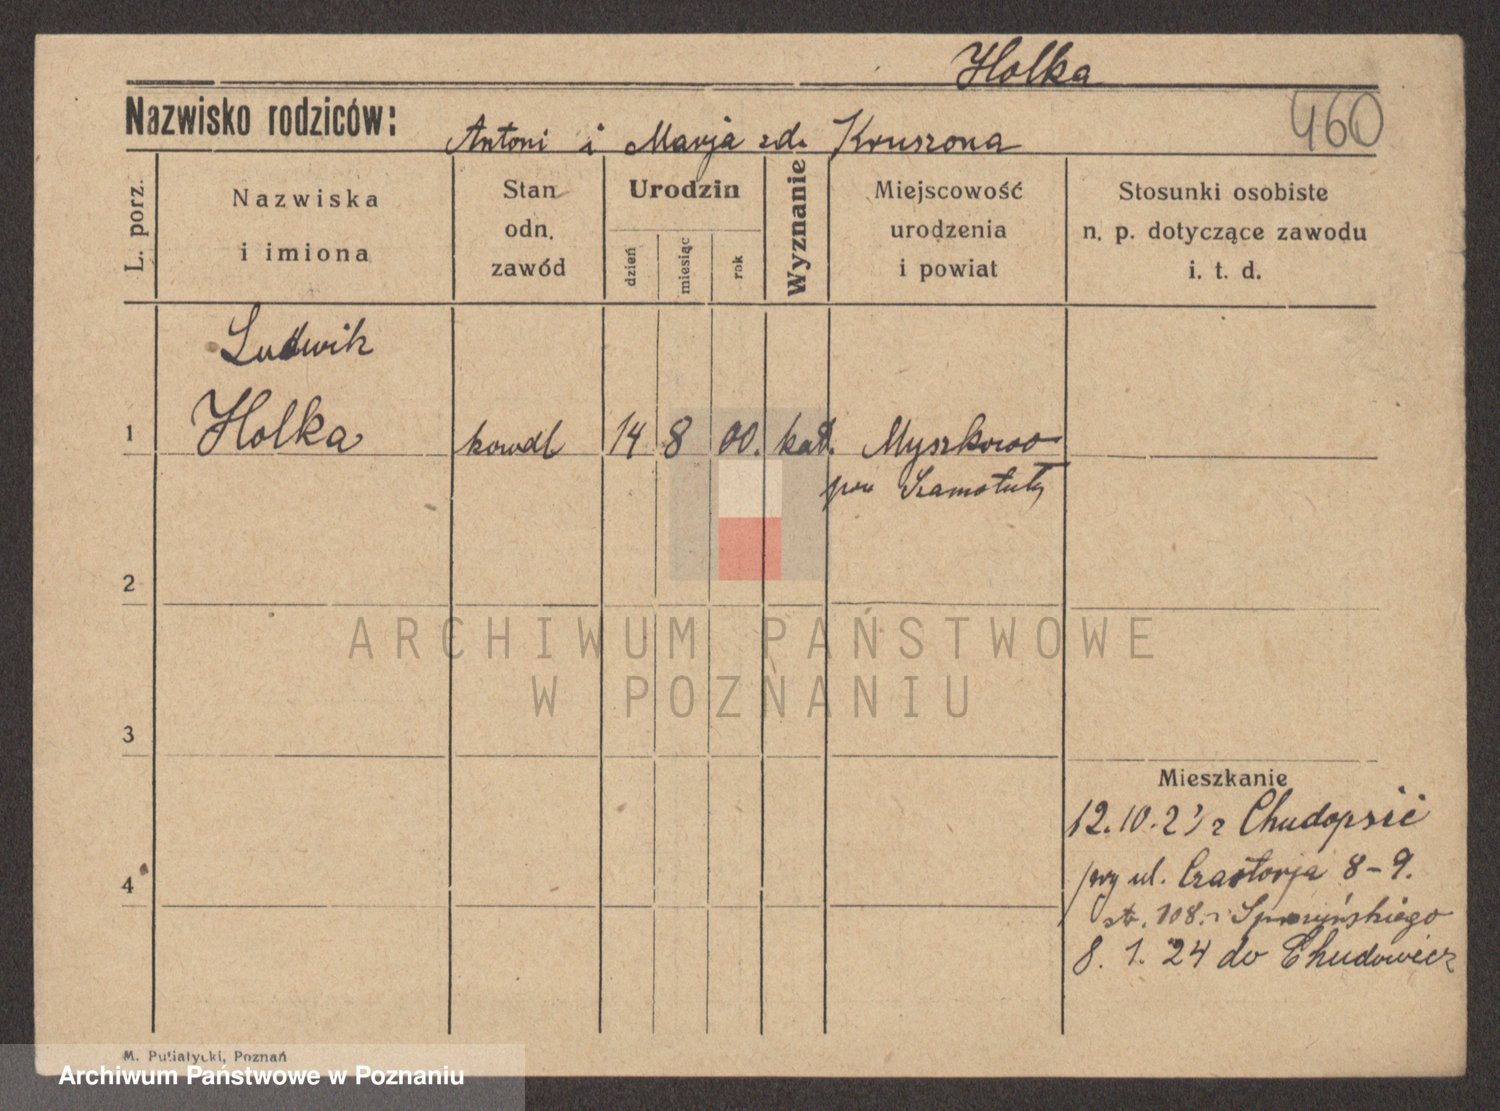 Holka
Nazwisko rodziców: Antoni i Marja zd. Kruszona
460
L. porz.
Nazwiska
i imiona
Stan
odn.
zawód
Urodzin
dzień
miesiąc
rok
Wyznanie
Miejscowość
urodzenia
i powiat
Stosunki osobiste
n. p. dotyczące zawodu
i. t. d.
Ludwik
1 Holka kowal 14 8 00. kat. Myszkowo
pow Szamotuły
2
3
4
Mieszkanie
12.10.23 z Chudopsic
przy ul. Czartorja 8-9.
st. 108.
8. 1. 24 do Chudowicz
M. Putiatycki, Poznań
ARCHIWUM PAŃSTWOWE
W POZNANIU
Archiwum Państwowe w Poznaniu